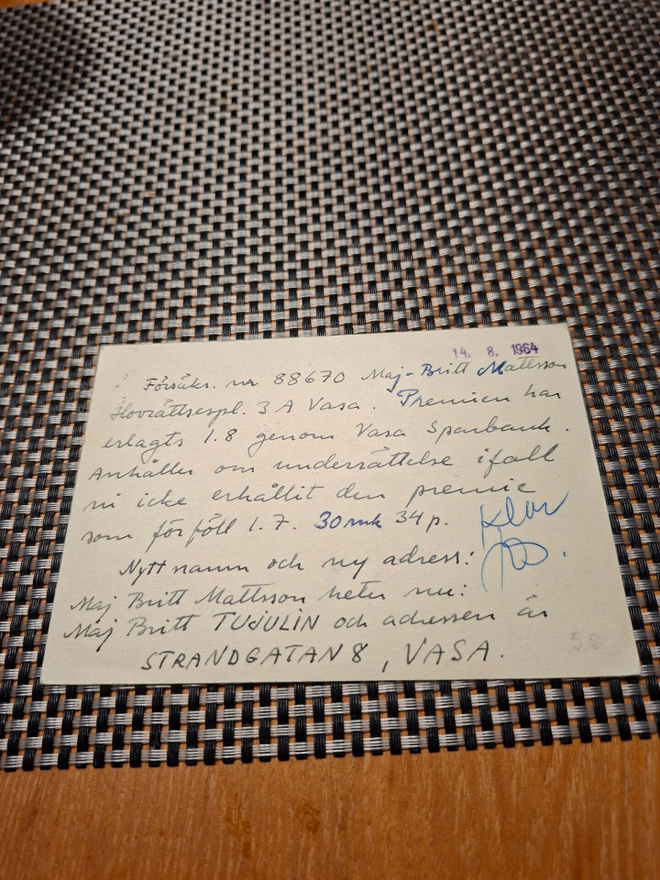 14. 8. 1964
Försäkr. nr 88670 Maj-Britt Mattsson
Hovrättsespl. 3 A Vasa. Premien har
erlagts 1.8 genom Vasa Sparbank.
Anhåller om underrättelse ifall
ni icke erhållit den premie
som förföll 1.7. 30 mk 34 p.
Klar
Nytt namn och ny adress:
Maj Britt Mattsson heter nu:
Maj Britt TUJULIN och adressen är
STRANDGATAN 8, VASA.
58